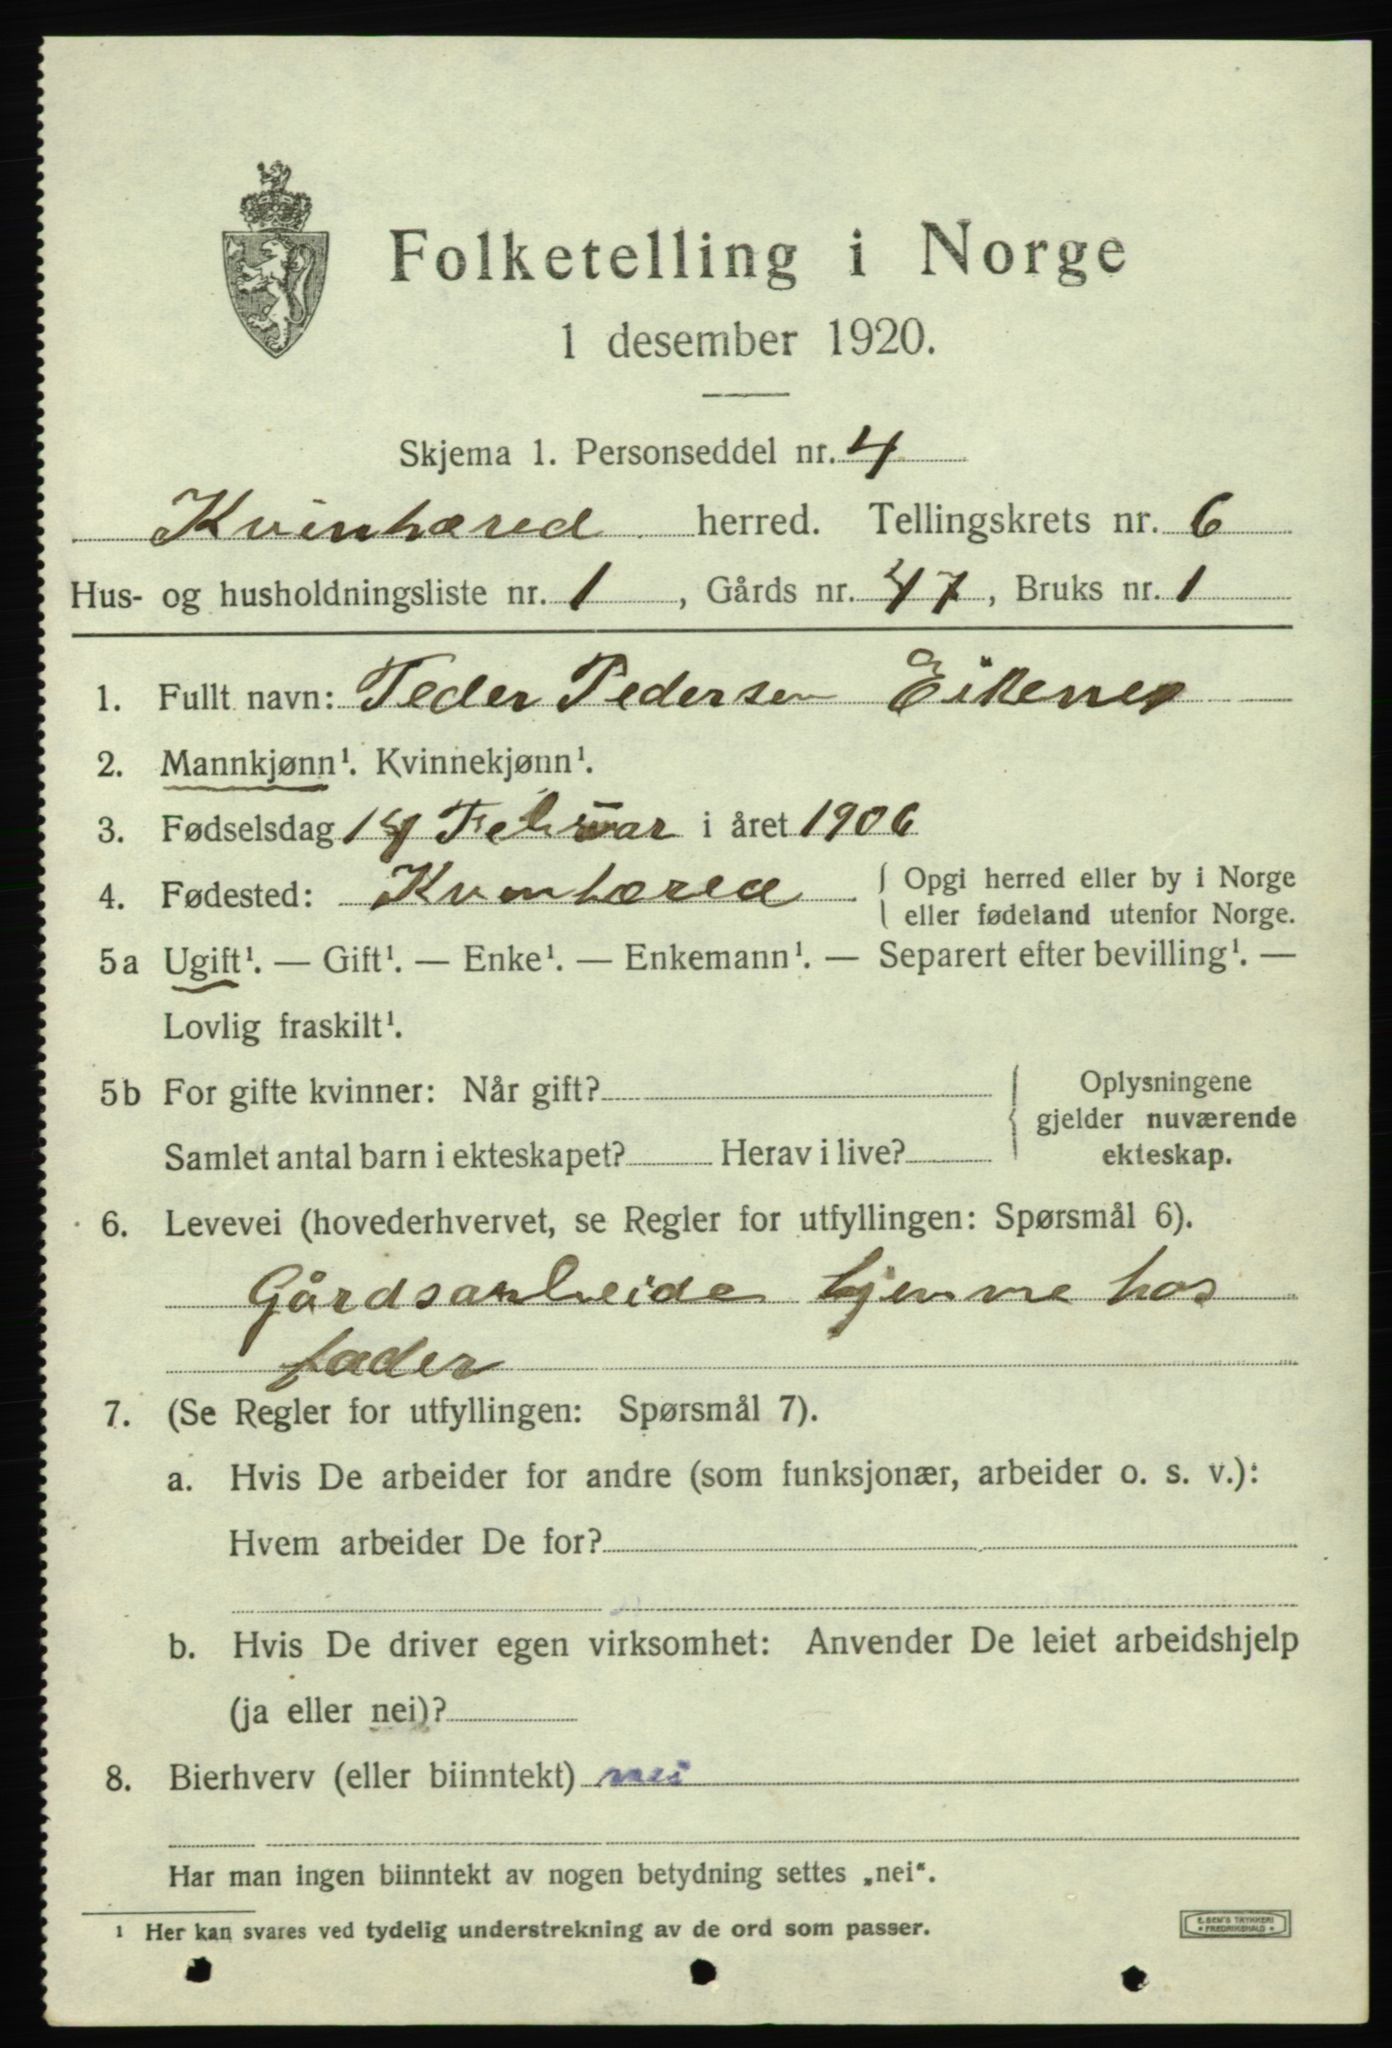 Folketelling i Norge
1 desember 1920.
Skjema 1. Personseddel nr. 4
Kvinhæred herred. Tellingskrets nr. 6
Hus- og husholdningsliste nr. 1, Gårds nr. 47, Bruks nr. 1
1. Fullt navn: Peder Pedersen Eikenes
2. Mannkjønn¹. Kvinnekjønn¹.
3. Fødselsdag 14 Februar i året 1906
4. Fødested: Kvinhæred { Opgi herred eller by i Norge
eller fødeland utenfor Norge.
5a Ugift¹. — Gift¹. — Enke¹. — Enkemann¹. — Separert efter bevilling¹. —
Lovlig fraskilt¹.
5b For gifte kvinner: Når gift? { Oplysningene
gjelder nuværende
Samlet antal barn i ekteskapet? Herav i live? ekteskap.
6. Levevei (hovederhvervet, se Regler for utfyllingen: Spørsmål 6).
Gårdsarbeide hjemme hos
fader
7. (Se Regler for utfyllingen: Spørsmål 7).
a. Hvis De arbeider for andre (som funksjonær, arbeider o. s. v.):
Hvem arbeider De for?
b. Hvis De driver egen virksomhet: Anvender De leiet arbeidshjelp
(ja eller nei)?
8. Bierhverv (eller biinntekt) nei
Har man ingen biinntekt av nogen betydning settes „nei“.
¹ Her kan svares ved tydelig understrekning av de ord som passer.
E. SEM'S TRYKKERI
• FREDRIKSHALD •